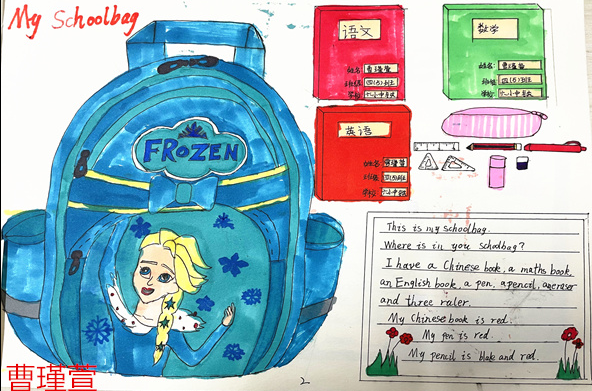 My Schoolbag
FROZEN
语文
姓名 曹瑾萱
班级 四(5)班
学校
数学
姓名: 曹瑾萱
班级: 四(5)班
学校:
英语
姓名 曹瑾萱
班级 四(5)班
学校
This is my schoolbag.
Where is in you schoolbag?
I have a Chinese book, a maths book,
an English book, a pen, a pencil, an eraser
and three ruler.
My Chinese book is red.
My pen is red.
My pencil is blak and red.
曹瑾萱
2